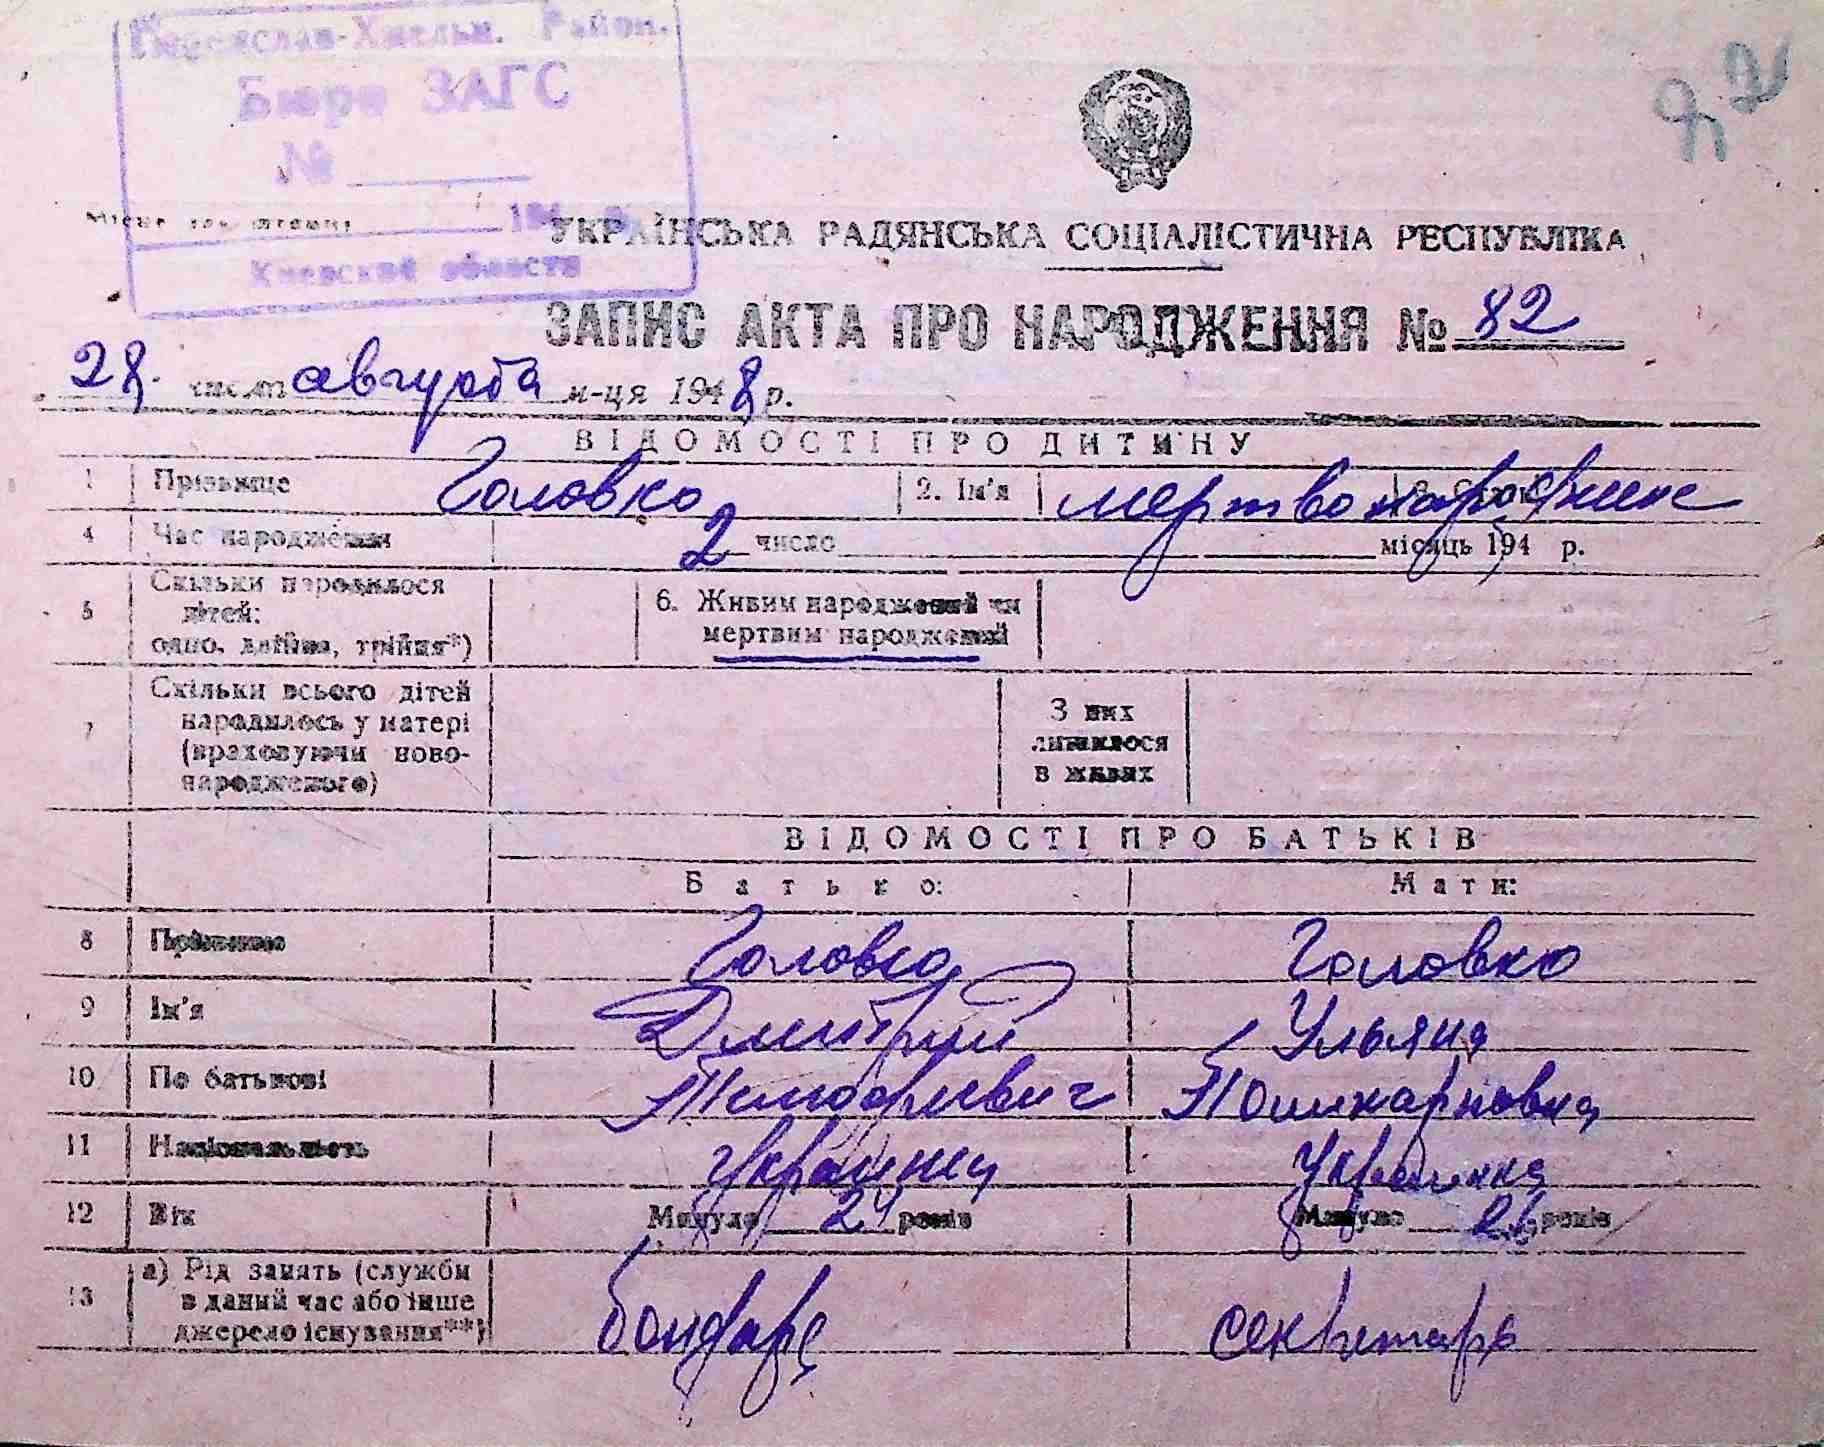 Переяслав-Хмельн. Район.
Бюро ЗАГС
№
194
Киевской области
УКРАЇНСЬКА РАДЯНСЬКА СОЦІАЛІСТИЧНА РЕСПУБЛІКА
ЗАПИС АКТА ПРО НАРОДЖЕННЯ № 82
28 числа августа м-ця 1948 р.
ВІДОМОСТІ ПРО ДИТИНУ
1 Прізвище Головко 2. Ім'я мертворожденне
4 Час народження 2 число місяць 194 р.
5 Скільки народилося
дітей:
одно, двійня, трійня*)
6. Живим народжений чи
мертвим народжений
7 Скільки всього дітей
народилось у матері
(враховуючи ново-
народженого)
З них
лишилося
в живих
ВІДОМОСТІ ПРО БАТЬКІВ
Батько: Мати:
8 Прізвище Головко Головко
9 Ім'я Дмитрий Ульяна
10 По батькові Поликарповна
11 Національність украинец украинка
12 Вік Минуло 24 років Минуло 26 років
13 а) Рід занять (служби
в даний час або інше
джерело існування**)
бондарь секретарь